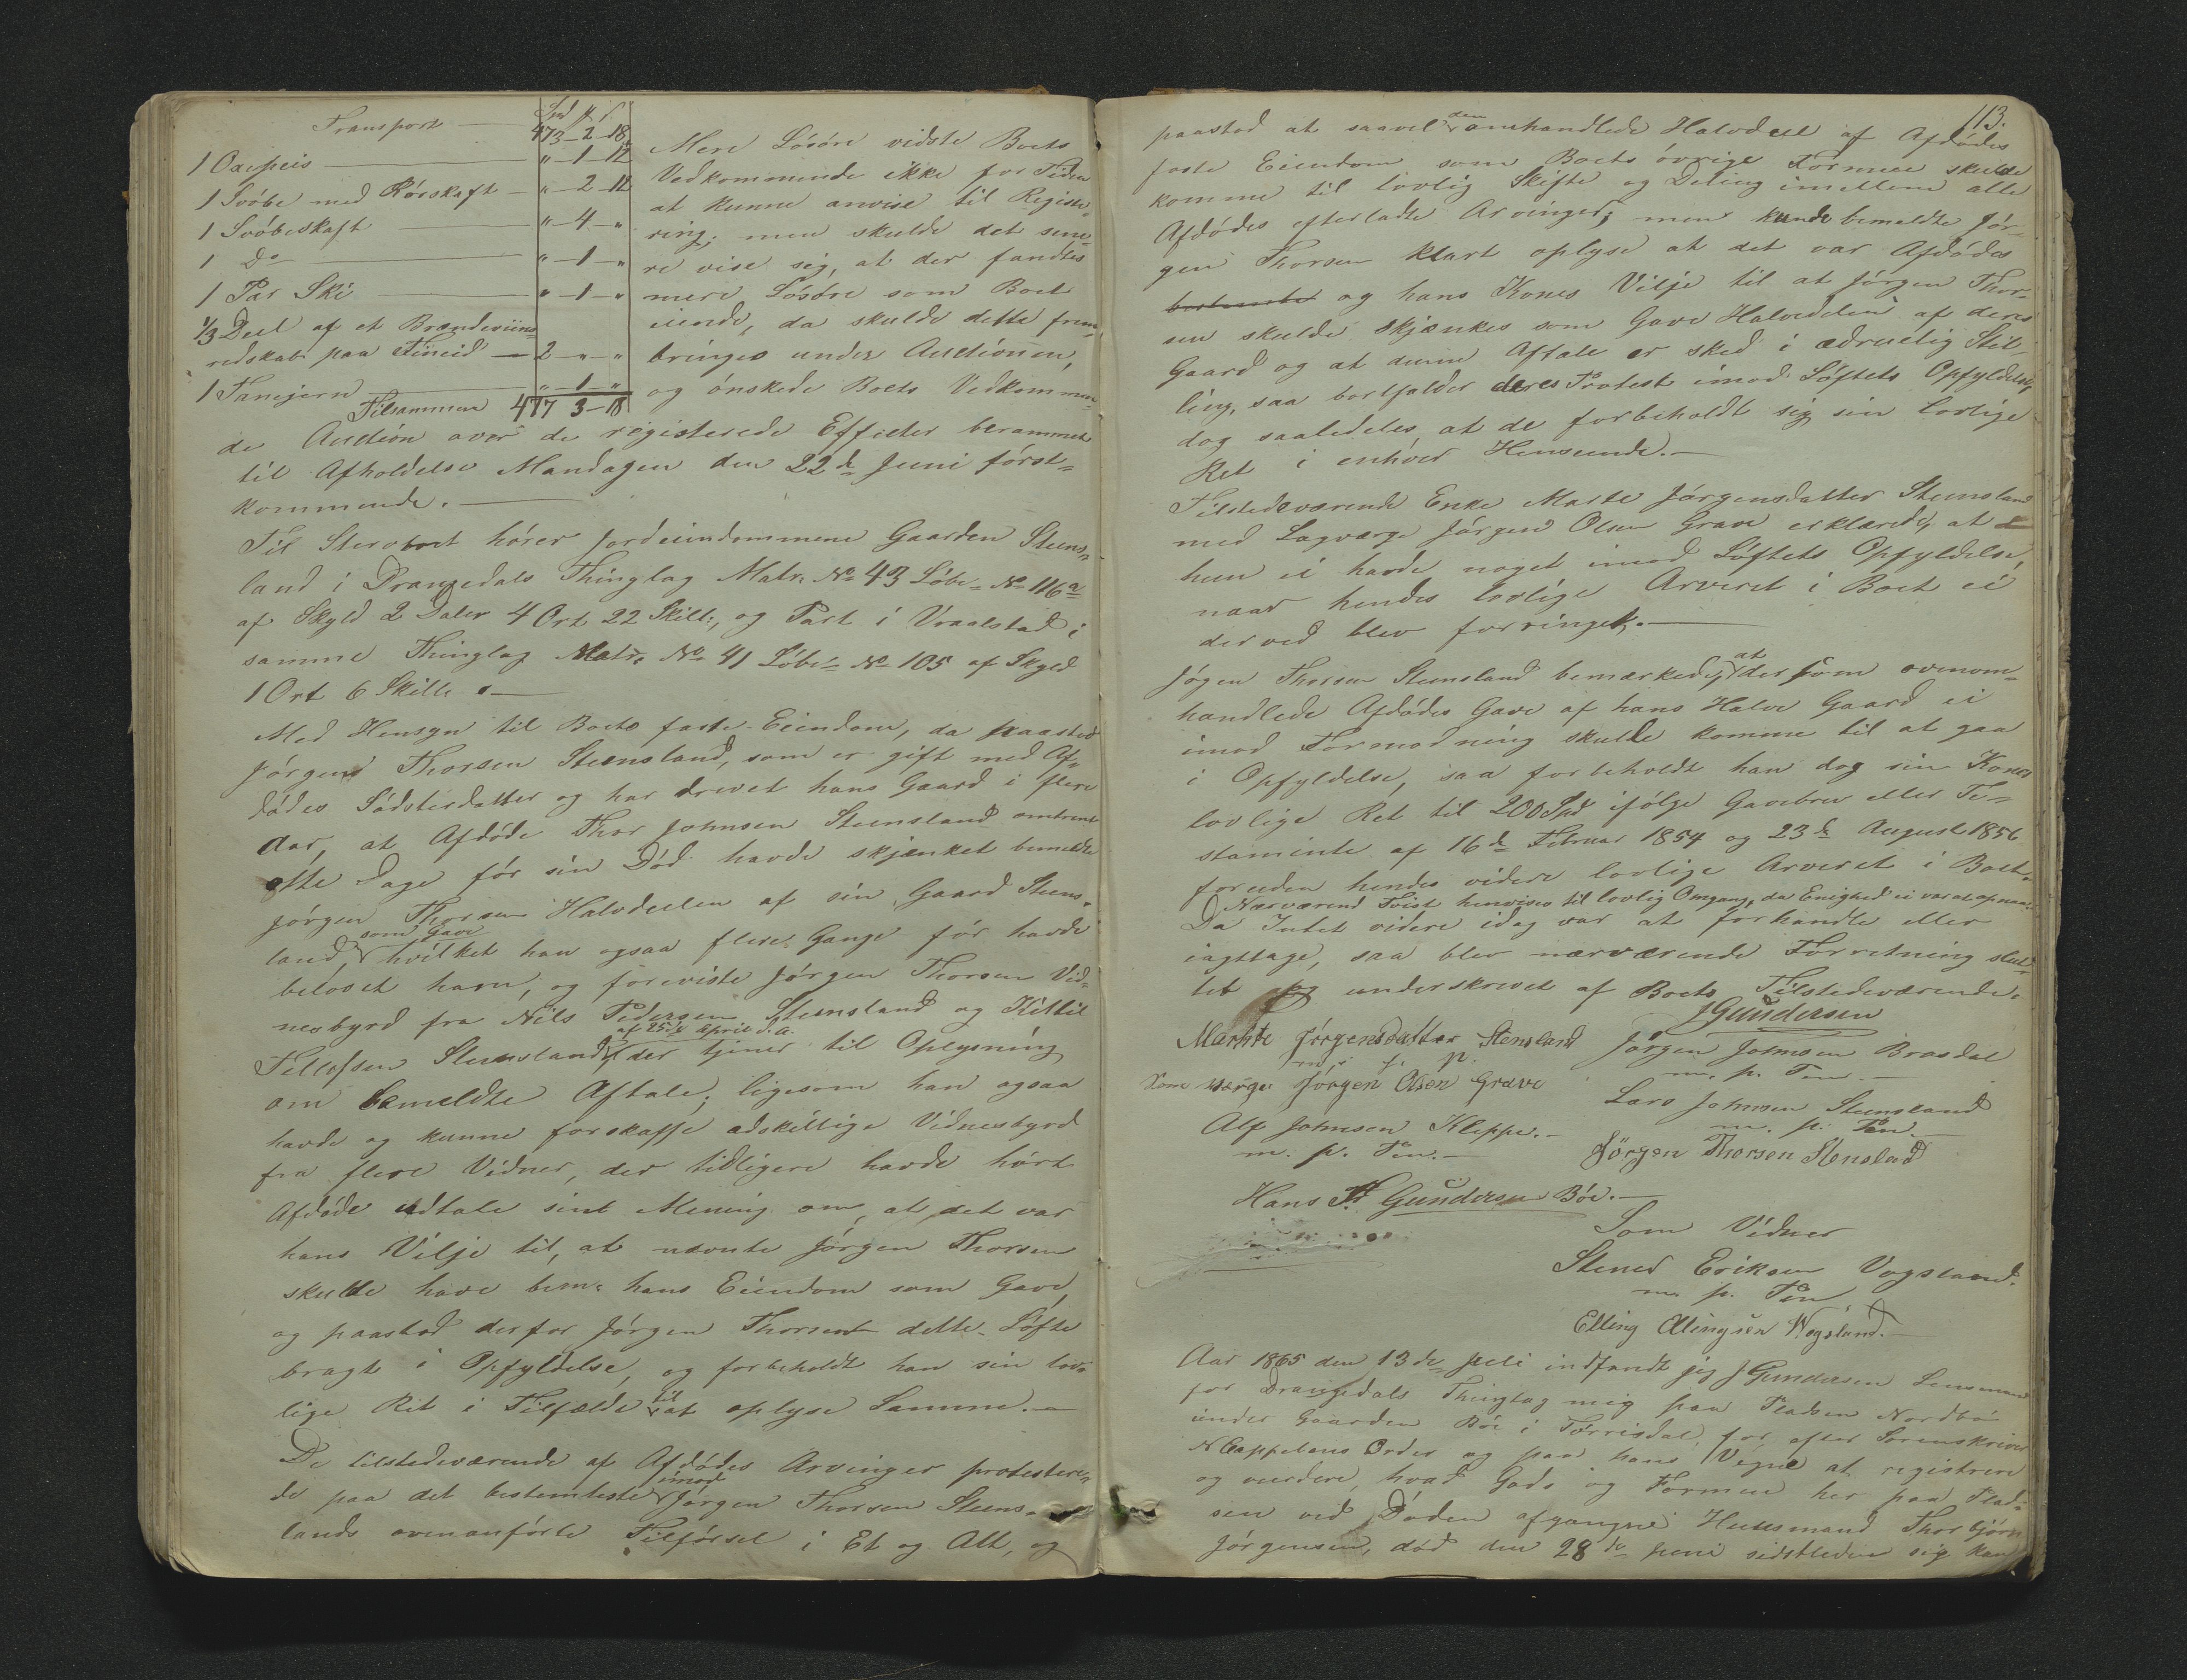 Transport — Spd ß
473-2-18
1 Oxepeis — " -1-12
1 Svöbe med Rörskaft — " -2-12
1 Svöbeskaft — " -4- "
1 Do — " -1- "
1 Par Ski — " -1- "
1/3 Deel af et Brændeviins
redskab paa Fineid — 2 - " - "
1 Tanejern — " -1- "
Tilsammen 477 3-18
Mere Lösöre vidste Boets
Vedkommende ikke for Tiden
at kunne anvise til Registe-
ring; men skulde det sene-
re vise sig, at der fandtes
mere Lösöre som Boet
eiende, da skulde dette frem
bringes under Auctionen,
og önskede Boets Vedkommen-
de Auction over de registerede Effecter berammet
til Afholdelse Mandagen den 22de Juni först-
kommende. —
Til Stervboet hörer Jordeiendommene Gaarden Steens-
land i Drangedals Thinglag Matr. No 43 Löbe- No 116a
af Skyld 2 Daler 4 Ort 22 Skill:, og Part i Vraalstad i
samme Thinglag Matr. No 41 Löbe- No 105 af Skyld
1 Ort 6 Skill. —
Med Hensyn til Boets faste Eiendom, da paastod
Jörgen Thorsen Steensland, som er gift med Af-
dödes Södsterdatter og har drevet hans Gaard i flere
Aar, at Afdöde Thor Johnsen Steensland omtrent
otte Dage för sin Död havde skjænket bemeldte
Jörgen Thorsen Halvdeelen af sin Gaard Steens-
land, som Gave hvilket han ogsaa flere Gange för havde
belovet ham, og foreviste Jörgen Thorsen Vid-
nesbyrd fra Nils Pedersen Steensland og Kittil
Tellefsen Steensland af 25de April d. A. der tjener til Oplysning
om bemeldte Aftale; ligesom han ogsaa
havde og kunne forskaffe adskillige Vidnesbyrd
fra flere Vidner, der tidligere havde hört
Afdöde udtale sin Mening om, at det var
hans Vilje til, at nævnte Jörgen Thorsen
skulde have bem. hans Eiendom som Gave,
og paastod derfor Jörgen Thorsen dette Löfte
bragt i Opfyldelse, og forbeholdt han sin lov-
lige Ret i Tilfælde til at oplyse Samme. —
De tilstedeværende af Afdödes Arvinger protestere-
de paa det bestemteste imod Jörgen Thorsen Steens-
lands ovenanförte Tilförsel i Et og Alt, og
113.
paastod at saavel den omhandlede Halvdeel af Afdödes
faste Eiendom som Boets övrige Formue skulde
komme til lovlig Skifte og Deling imellem alle
Afdödes efterladte Arvinger; men kunde bemeldte Jör-
gen Thorsen klart oplyse at det var Afdödes
bestemte og hans Kones Vilje til at Jörgen Thor-
sen skulde skjænkes som Gave Halvdelen af deres
Gaard og at denne Aftale er sked i ædruelig Stil-
ling, saa bortfalder deres Protest imod Löftets Opfyldelse,
dog saaledeles, at de forbeholdt sig sin lovlige
Ret i enhver Henseende. —
Tilstedeværende Enke Marte Jörgensdatter Steensland
med Lagværge Jörgen Olsen Grave erklærede, at
hun ei havde noget imod Löftets Opfyldelse,
naar hendes lovlige Arveret i Boet ei
derved blev forringet. —
Jögen Thorsen Steensland bemærkede, at dersom ovenom-
handlede Afdödes Gave af hans Halve Gaard ei
imod Formodning skulde komme til at gaa
i Opfyldelse, saa forbeholdt han dog sin Kones
lovlige Ret til 200 Spd ifölge Gavebrev eller Te-
stamente af 16de Februar 1854 og 23de August 1856
foruden hendes videre lovlige Arveret i Boet.
Nærværend Tvist henvises til lovlig Omgang, da Enighed ei var at opnaa.
Da Intet videre idag var at forhandle eller
iagttage, saa blev nærværende Forretning slut-
tet og underskrevet af Boets Tilstedeværende.
JGundersen
Marhte Jørgensdatter Stensland
m. f. p.
som værge Jörgen Olsen Grave
Alf Johnsen Kleppe. —
m. p. Pen. —
Jörgen Johnsen Brosdal
m. p. Pen. —
Lars Johnsen Steensland
m. p. Pen. —
Jörgen Thorsen Stensland
Hans Gundersen Böe. —
Som Vidner
Stener Eriksen Vogsland.
m. p. Pen
Elling Ellingsen Wogsland. —
Aar 1865 den 13de Juli indfandt jeg JGundersen Lensmand
for Drangedals Thinglag mig paa Pladsen Nordbö
under Gaarden Böe i Törrisdal, for efter Sorenskriver
N Cappelens Ordre og paa hans Vegne at registrere
og vurdere, hvad Gods og Formue her paa Plad-
sen ved Döden afgangne Huusmand Thorbjörn
Jörgensen, död den 28de Juni sidstleden sig kan